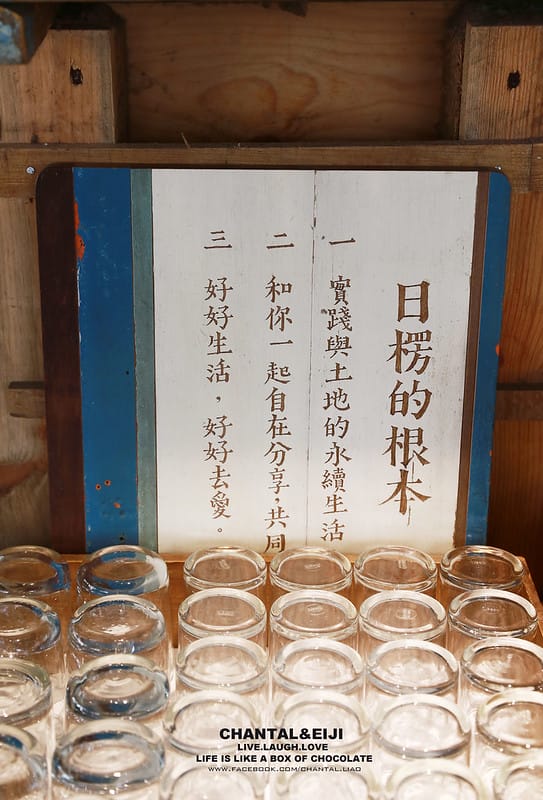 日楞的根本
一 實踐與土地的永續生活
二 和你一起自在分享，共同
三 好好生活，好好去愛。
CHANTAL&EIJI
LIVE.LAUGH.LOVE
LIFE IS LIKE A BOX OF CHOCOLATE
WWW.FACEBOOK.COM/CHANTAL.LIAO